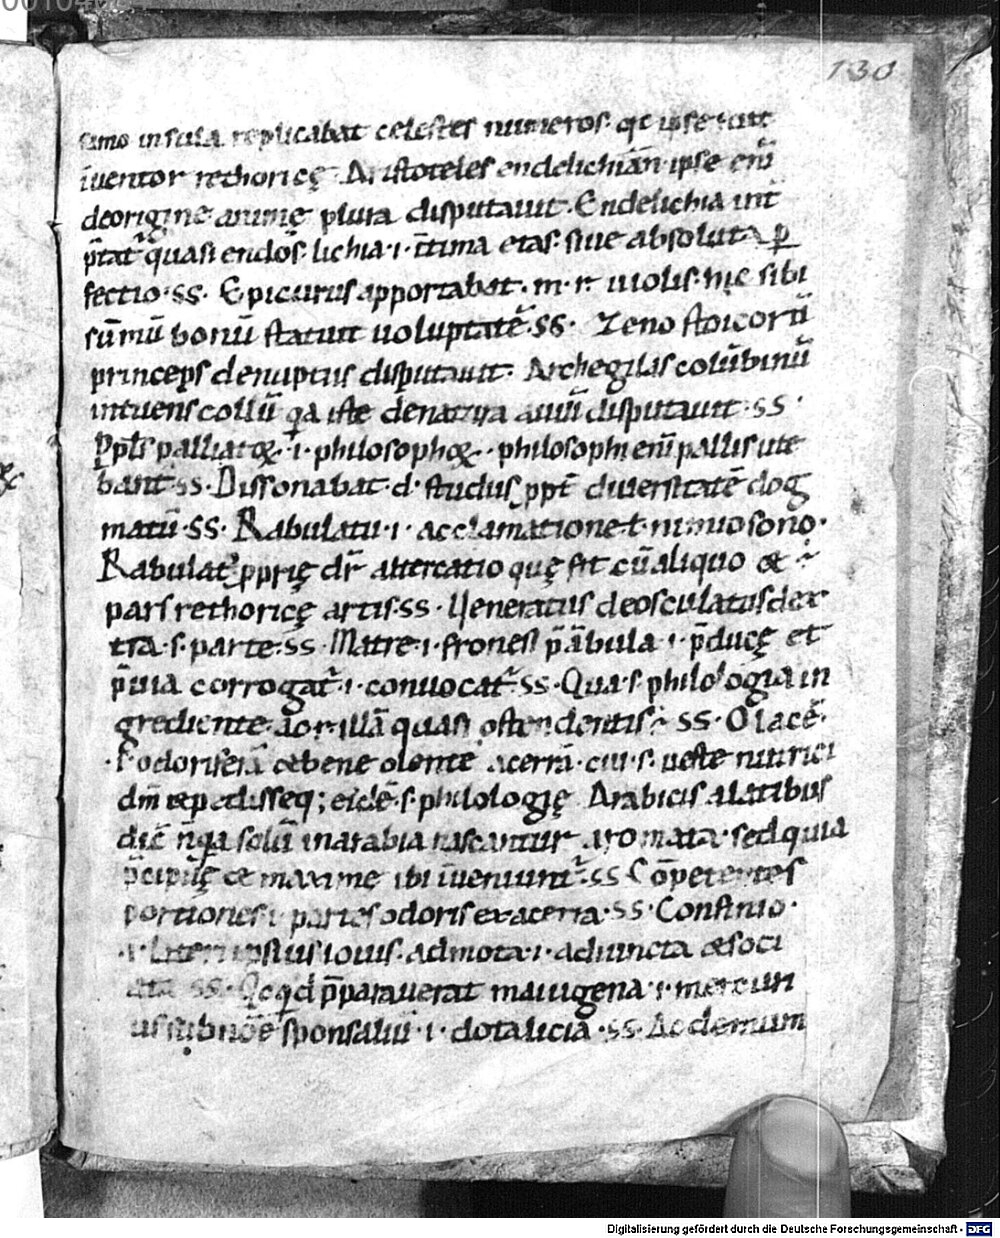 0010404
130
samo insula replicabat celestes numeros. qr ipse fuit
īuentor rethoricę. Aristoteles endelichian ipse enī
deorigine animę plura disputauit. Endelichia int̄
p̄tat᷑ quasi endos. lichia .i. īntima etas. siue absoluta ꝑ
fectio .ss. Epicurus apportabat. m. r. uiolis. hic sibi
sūmū bonū statuit uoluptatē .ss. Zeno stoicorū
princeps denuptus disputauit. Archegilas colūbinū
intuens collū qa iste denatura auiū disputauit .ss.
palliatoꝝ .i. philosophoꝝ. philosophi enī pallis ute
bant̄ .ss. Dissonabat .d. studiis ꝓpt̄ diuersitatē dog
matū .ss. Rabulatu .i. acclamatione ł nimuo sono.
Rabulat᷑ ꝓprię dr̄ altercatio quę fit cū aliquo &
pars rethoricę artis .ss. Ueneratus deosculatus dex
tra .s. parte .ss. Matre .i. fronesi p̄ābula .i. p̄ducę et
p̄uia corrogat᷑ .i. conuocat᷑ .ss. Qua .s. philologia in
grediente. illā quasi ostendentis .ss. Olacē.
.i. odoriferā & bene olentē acerrā. cui .s. ueste nutrici
eidē .s. philologię Arabicis alatibus
dic̄ n̄ qa solū in arabia nascantur aromata. sed quia
p̄cipuę & maxime ibi īueniunt᷑ .ss. Cōpetentes
portiones .i. partes odoris ex acerra .ss. Confinio.
.i. lateri ipsius iouis. admota .i. adiuncta & soci
ata .ss. Qcqd p̄parauerat maiugena .i. mercuri
us sub noē sponsaliū .i. dotalicia .ss. Ac demum
Digitalisierung gefördert durch die Deutsche Forschungsgemeinschaft - DFG